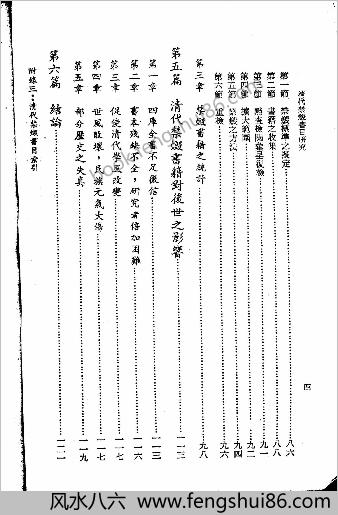 清代禁燬書目研究
四
第一節 禁燬標準之擬定……八六
第二節 書籍之收集……八八
第三節 點查檢閱暨呈核……九一
第四節 擴大範圍……九二
第五節 禁燬之方法……九四
第六節 重檢……九六
第三章 禁燬書籍之統計……九八
第五篇 清代禁燬書籍對後世之影響……一一三
第一章 四庫全書不足徵信……一一三
第二章 書本殘缺不全，研究者倍加困難……一一六
第三章 促使清代學風改變……一一七
第四章 世風敗壞，民族元氣大傷……一一七
第五章 部分歷史之失真……一一九
第六篇 結論……一二一
附錄三：清代禁燬書目索引
kongfengshui86.com
风水八六 - www.fengshui86.com